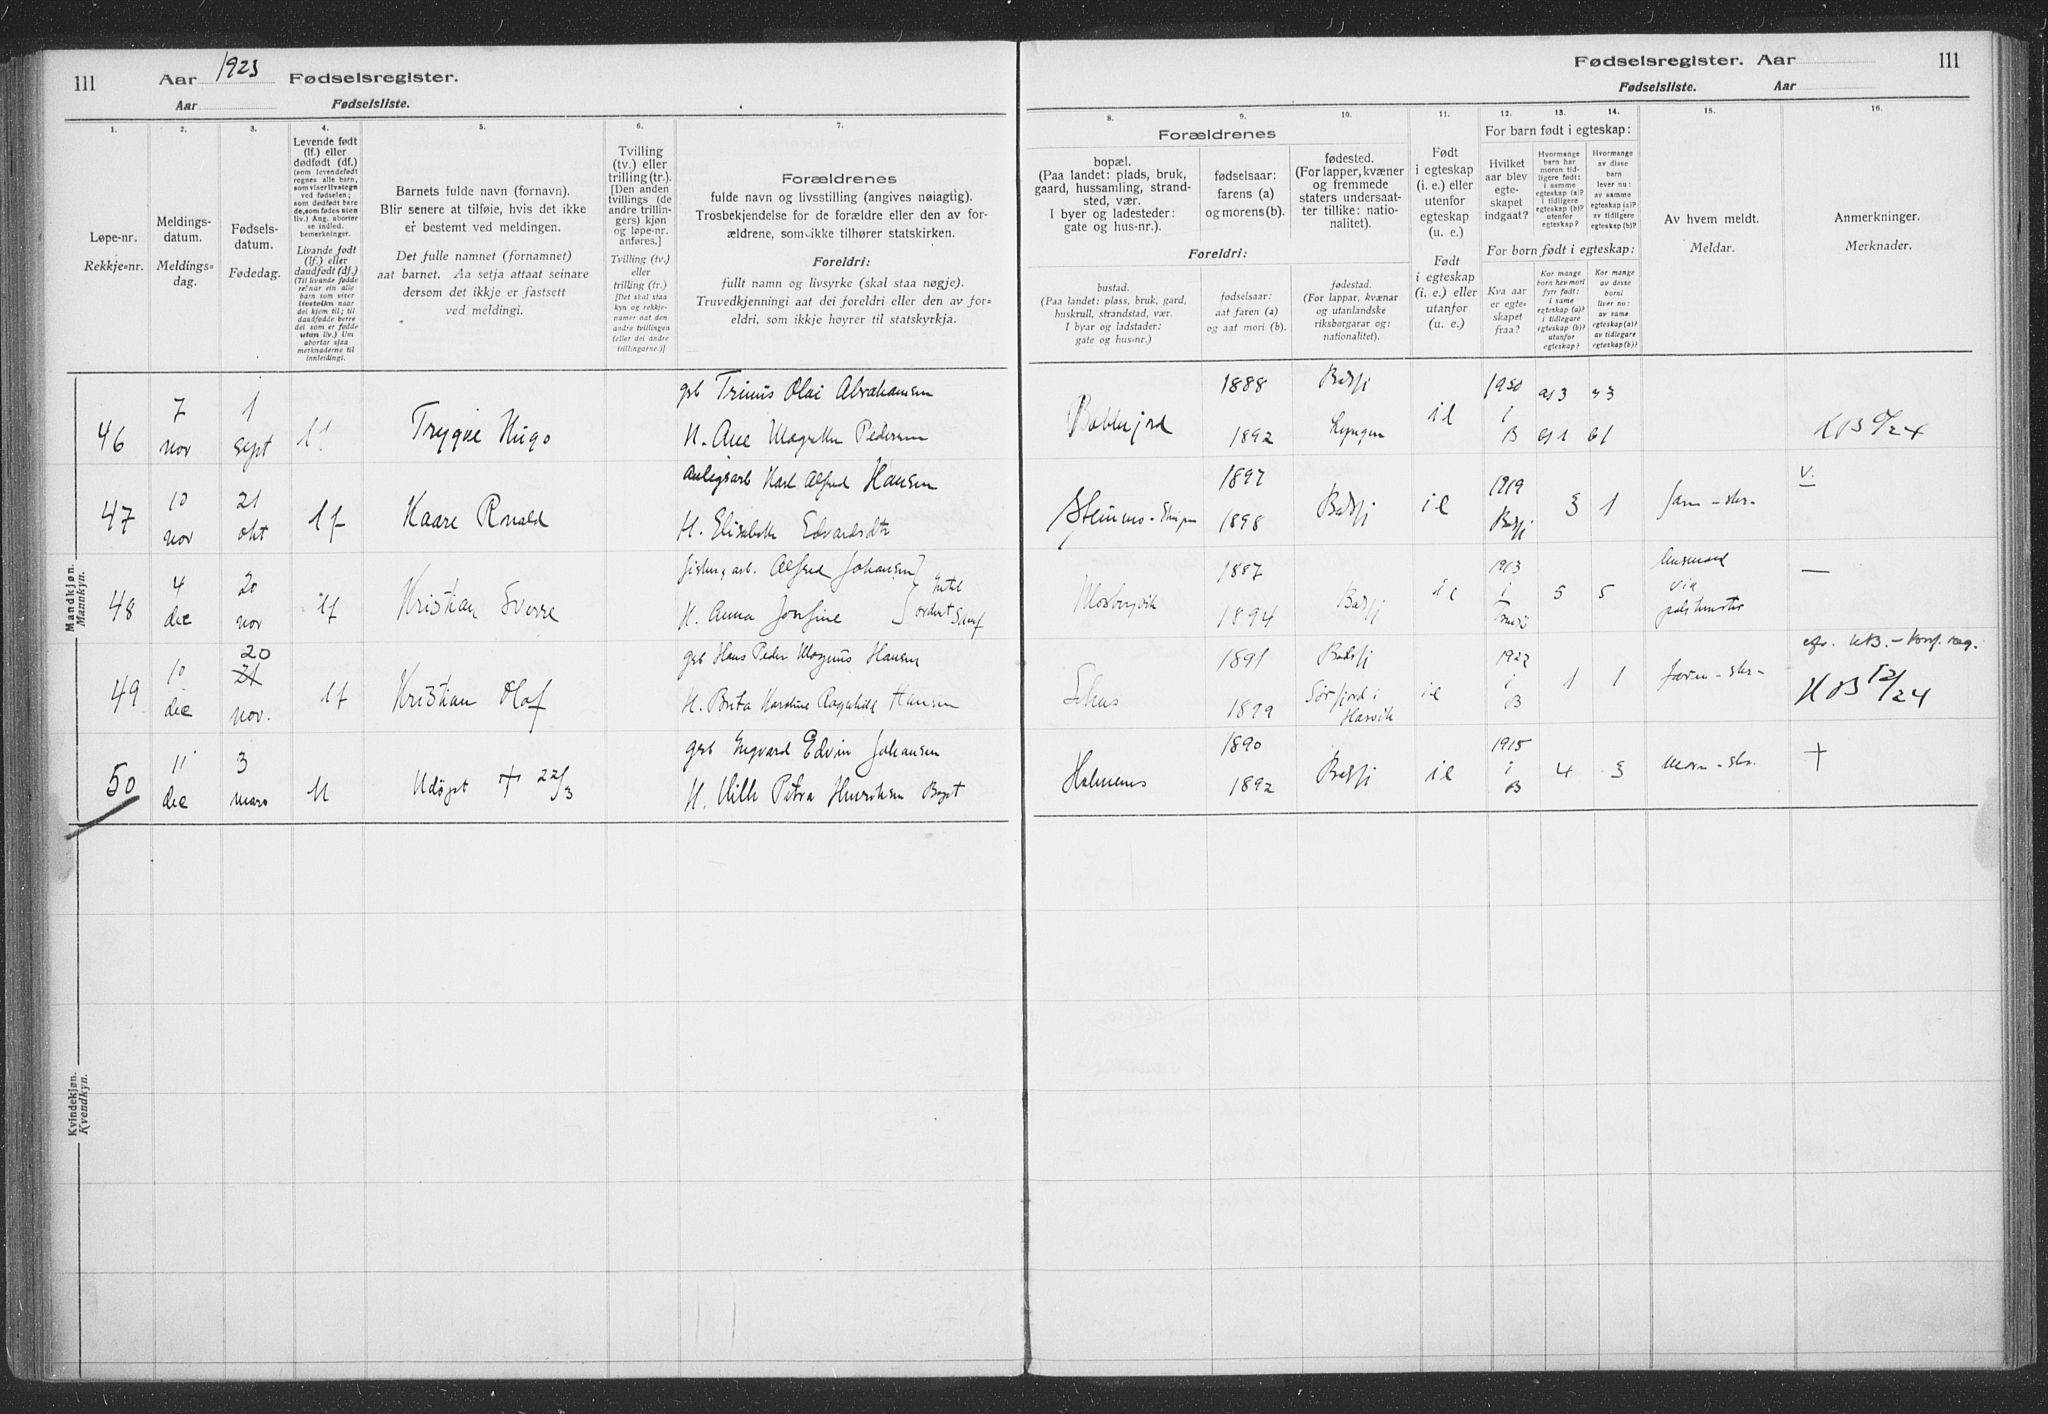 111 Aar 1923 Fødselsregister.
Aar Fødselsliste.
1. 2. 3. 4. 5. 6. 7.
Løpe-nr.
Rekkje-nr.
Meldings-
datum.
Meldings-
dag.
Fødsels-
datum.
Fødedag.
Levende født
(lf.) eller
dødfødt (df.)
(som levendefødt
regnes alle barn,
som viser livstegn
ved fødselen;
som dødfødt bare
de, som fødes uten
liv.) Ang. aborter
se indled.
bemerkninger.
Livande født
(lf.) eller
daudfødt (df.)
(Til livande fødde
reknar ein alle
barn som viter
livsteikn naar
dei kjem til; til
daudfødde berre
dei som er fødde
utan liv.) Um
abortar sjaa
merknaderne til
innleidingi.
Barnets fulde navn (fornavn).
Blir senere at tilføie, hvis det ikke
er bestemt ved meldingen.
Det fulle namnet (fornamnet)
aat barnet. Aa setja attaat seinare
dersom det ikkje er fastsett
ved meldingi.
Tvilling
(tv.) eller
trilling (tr.).
[Den anden
tvillings (de
andre trillin-
gers) kjøn
og løpe-nr.
anføres.]
Tvilling (tv.)
eller
trilling (tr.)
[Det skal staa
kyn og rekkje-
numer aat den
andre tvillingen
(eller dei andre
trillingarne.)]
Forældrenes
fulde navn og livsstilling (angives nøiagtig).
Trosbekjendelse for de forældre eller den av for-
ældrene, som ikke tilhører statskirken.
Foreldri:
fullt namn og livsyrke (skal staa nøgje).
Truvedkjenningi aat dei foreldri eller den av for-
eldri, som ikkje høyrer til statskyrkja.
Mandkjøn.
Mannkyn.
46
7
nov
1
sept
Trygve Hugo
grb Trinus Olai Abrahamsen
H. Ane Magrethe Pedersen
47
10
nov
21
okt
lf
Kaare Ronald
Anlegsarb Karl Alfred Hansen
H. Elisabeth Edvardsdtr
48
4
dec
20
nov
lf
Kristian Sverre
fisker, arb. Alfred Johansen
H. Anna Josefine
49
10
dec
20
21
nov.
lf
Kristian Olaf
grb Hans Peder Magnus Hansen
H. Brita Kardine Ragnhild Hansen
50
11
dec
3
mars
Udøpt + 22/3
grb Ingvard Edvin Johansen
H. Milla Petra Henriksen
Kvindekjøn.
Kvendkyn.
Fødselsregister. Aar 111
Fødselsliste. Aar
8. 9. 10. 11. 12. 13. 14. 15. 16.
Forældrenes
bopæl.
(Paa landet: plads, bruk,
gaard, hussamling, strand-
sted, vær.
I byer og ladesteder:
gate og hus-nr.).
fødselsaar:
farens (a)
og morens (b).
fødested.
(For lapper, kvæner
og fremmede
staters undersaat-
ter tillike: natio-
nalitet).
Foreldri:
bustad.
(Paa landet: plass, bruk, gard,
huskrull, strandstad, vær.
I byar og ladstader:
gate og hus-nr.)
fødselsaar:
aat faren (a)
og aat mori (b).
fødestad.
(For lappar, kvænar
og utanlandske
riksborgarar og:
nationalitet).
Født
i egteskap
(i. e.) eller
utenfor
egteskap
(u. e.)
Født
i egteskap
(i. e.) eller
utanfor
(u. e.)
For barn født i egteskap:
Hvilket
aar blev
egte-
skapet
indgaat?
Hvormange
barn har
moren tid-
ligere født:
i samme
egteskap (a)?
i tidligere
egteskap (b)?
utenfor
egteskap?
Hvormange
av disse
barn
lever nu:
av samme
egteskap (a)?
av tidligere
egteskap (b)?
For born født i egteskap:
Kva aar
er egte-
skapet
fraa?
Kor mange
born hev mori
fyrr født:
i same
egteskap (a)?
i tidlegare
egteskap (b)?
utanfor
egteskap?
Kor mange
av desse
borni
liver no:
av same
egteskap (a)?
av tidlegare
egteskap (b)?
Av hvem meldt.
Meldar.
Anmerkninger.
Merknader.
1888
1892
Balsfj
Lyngen
ie
i
B
a) 3
b) 1
a 3
b 1
1897
1898
Balsfj
ie
1919
Balsfj
3
1
v.
1887
1894
Balsfj
ie
1913
i
5
5
via
—
1891
1899
Balsfj
Sørfjord i
Hasvik
ie
i
B
1
1
KB 12/24
1890
1892
Balsfj
ie
1915
i
B
4
3
+